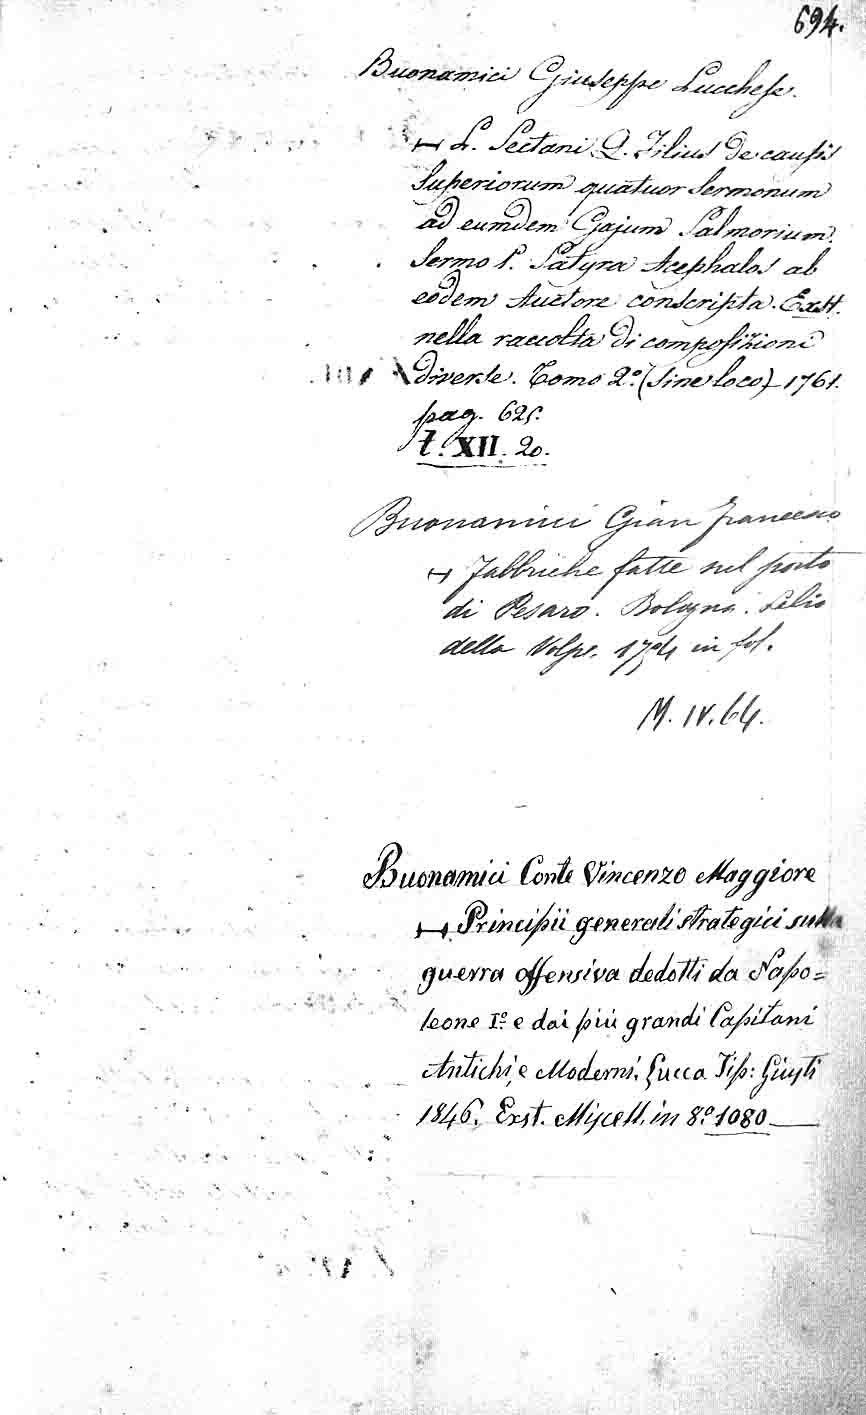 694.
Buonamici Giuseppe Lucchese.
L. Sectani Q. Filius de causis
Superiorum quatuor Sermonum
ad eumdem Gajum Salmorium.
Sermo 1. Satyra Acephalos ab
eodem Auctore conscripta. Exst.
nella raccolta di composizioni
diverse. Tomo 2º. (sine loco) 1761.
pag.
XII. 20.
Buonamici Gian Francesco
Fabbriche fatte nel porto
di Pesaro. Bologna. Lelio
della Volpe. in fol.
M. IV. 64.
Buonamici Conte Vincenzo Maggiore
Principii generali strategici sulla
guerra offensiva dedotti da Napo=
leone Iº e dai più grandi Capitani
Antichi, e Moderni. Lucca Tip: Giusti
1846. Exst. Miscell. in 8º 1080